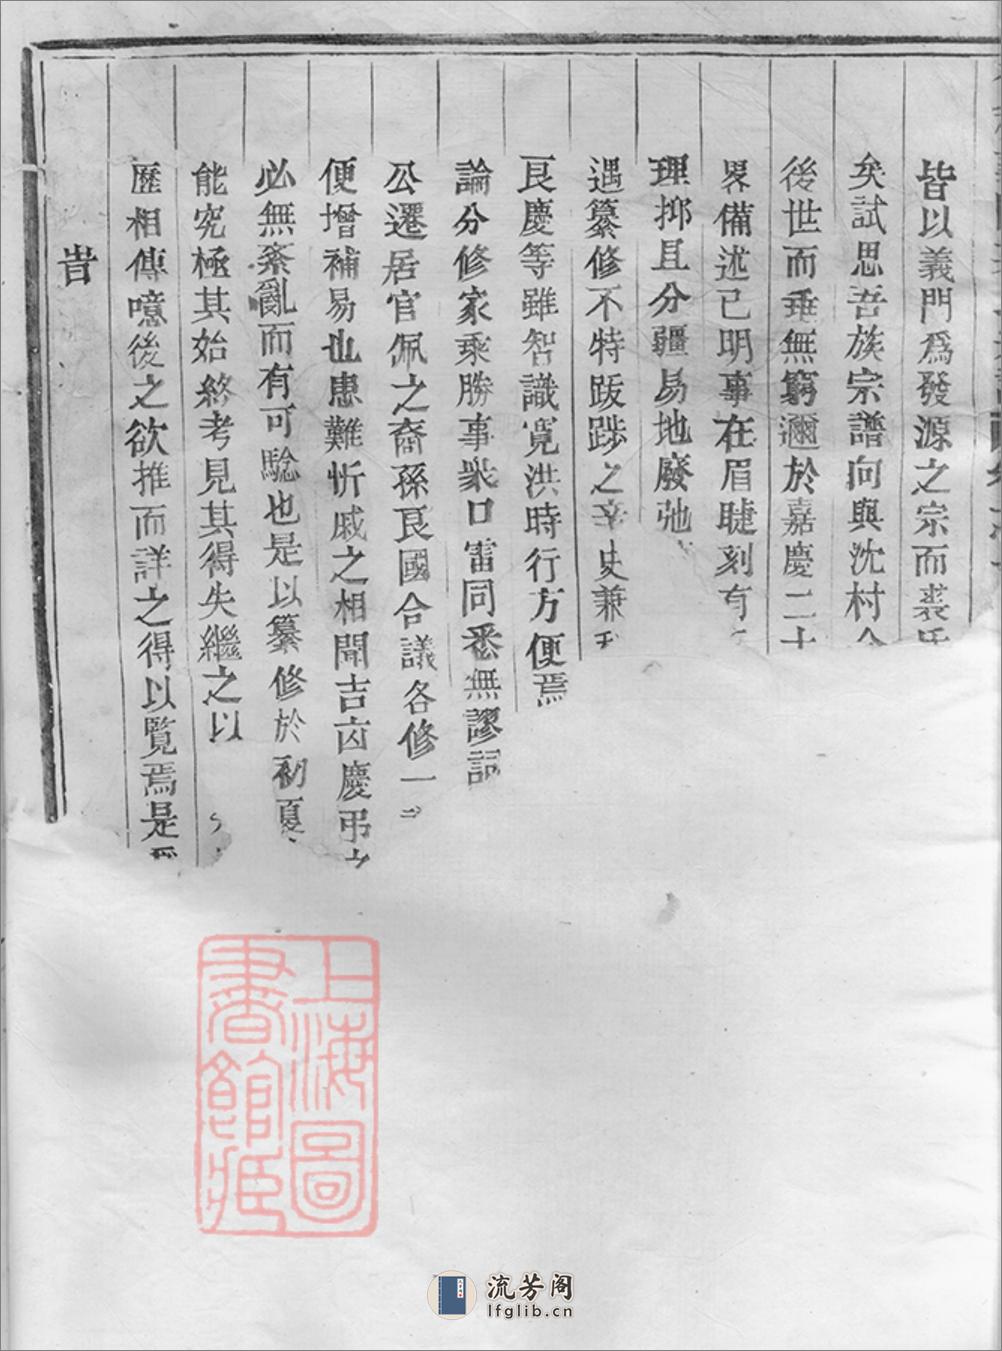 皆以義門爲發源之宗而裘氏
矣試思吾族宗譜向與沈村合
後世而垂無窮邇於嘉慶二十
畧備述已明事在眉睫刻有
理抑且分疆易地廢弛
遇纂修不特跋踄之辛史兼
艮慶等雖智識寛洪時行方便焉
論分修家乘勝事衆口雷同悉無謬
公遷居官佩之裔孫艮國合議各修一
便增補易也患難忻戚之相聞吉凶慶弔之
必無紊亂而有可騐也是以纂修於初夏
能究極其始終考見其得失繼之以
歷相傳噫後之欲推而詳之得以覧焉是爲
旹
上海圖書館藏
流芳阁
lfglib.cn